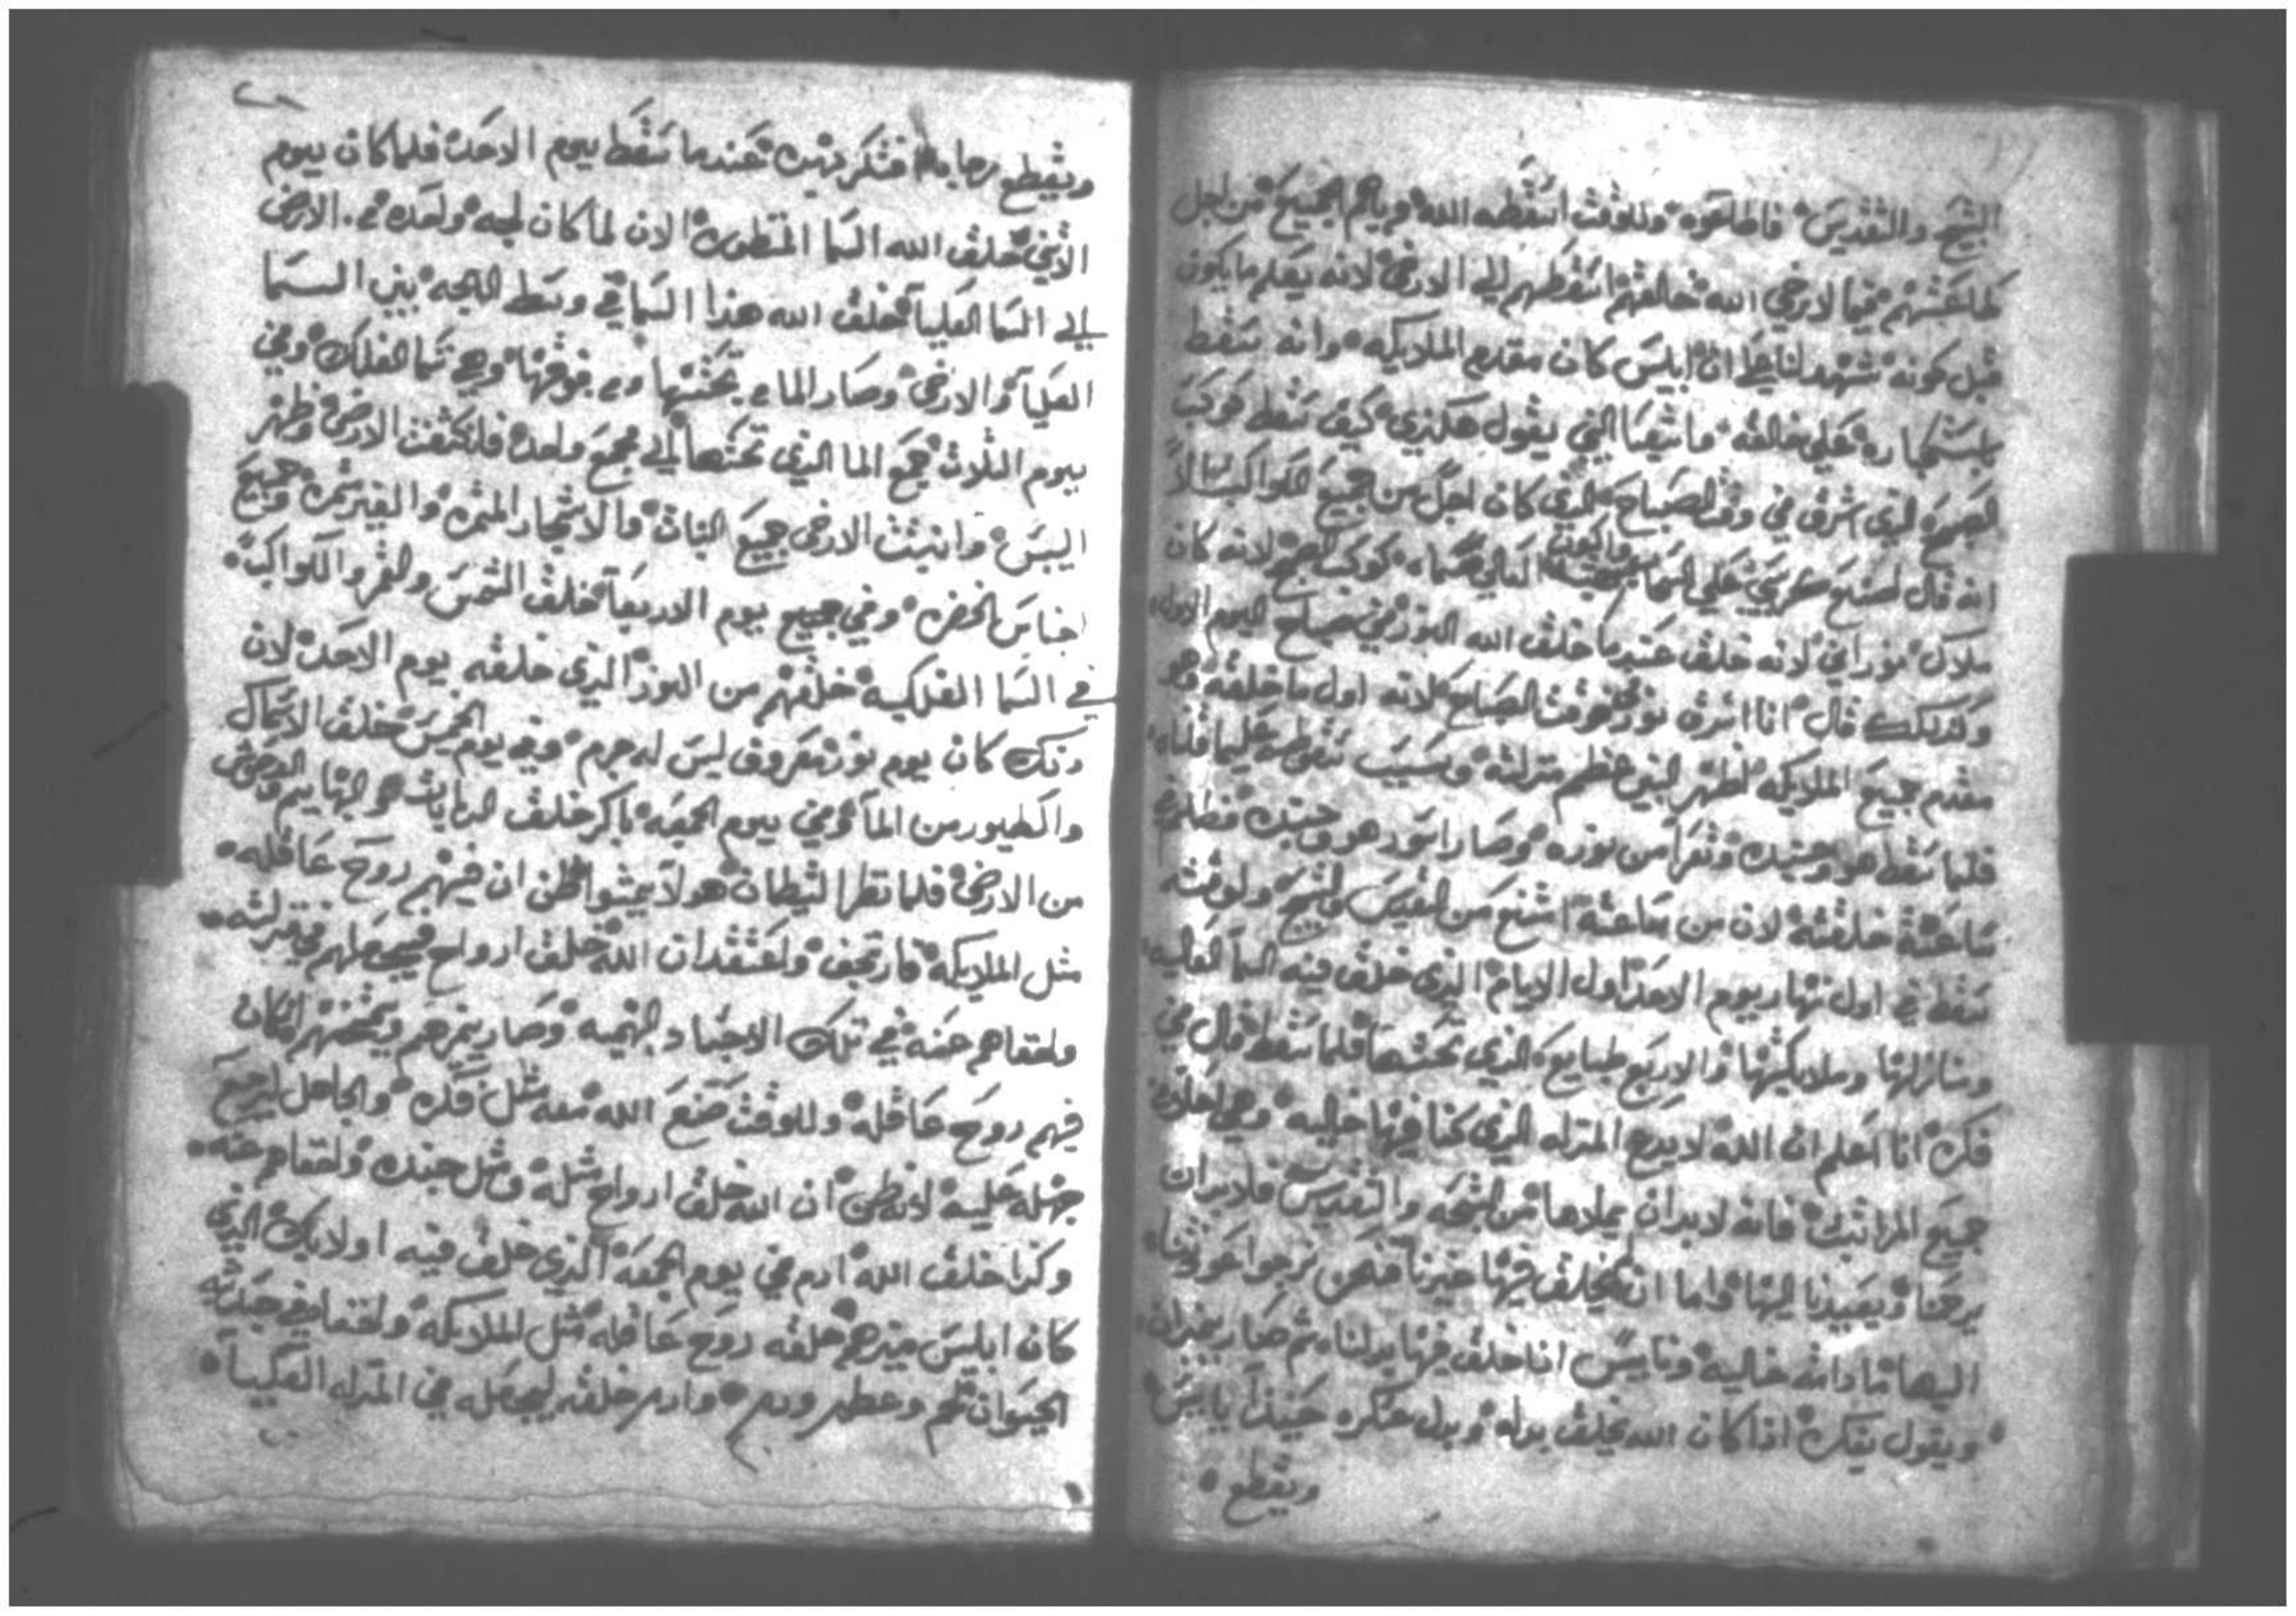 التسبيح والتقديس فاطاعوه وللوقت اسقطه الله وياهم الجميع من اجل
طاعتهم فيما لا يرضي الله خالقهم اسقطهم الي الارض لانه يعلم ما يكون
قبل كونه شهد لنا ان ابليس كان مقدم الملايكه وانه سقط
باستكباره علي خالقه اشعيا النبي يقول هكذي كيف سقط كوكب
الصبح الذي اشرق في وقت الصباح الذي كان اجل من جميع الكواكب
انه قال اصنع كرسي علي السما واكون العالي كوكب الصبح لانه كان
ملاك نوراني لانه خلق عندما خلق الله النور في صباح اليوم الاول
وكذلك قال انا اشرق نور في وقت الصباح لانه اول ما خلقه وهو
مقدم جميع الملايكه اظهر النبي عظم منزلته وسبب سقوطه علي ما قلناه
فلما سقط هو وجنده وتعرا من نوره وصار اسود هو وجنده
ساعة خلقته لان من ساعته امتنع من التقديس والتسبيح ولوقته
سقط في اول نهار يوم الاحد اول الايام الذي خلق فيه السما العاليه
ومنازلها وملايكتها والاربع طبايع الذي تحتها فلما سقط قال في
فكره انا اعلم ان الله لا يدع المنزله الذي كنا فيها خاليه وهي اعلا من
جميع المراتب فانه لا بد ان يملاها من التسبحه والتقديس فلا بد ان
يرحمنا ويعيدنا اليها واما ان يخلق فيها غيرنا فنحن نرجوا عودتنا
اليها ما دامت خاليه ونايس اذا خلق فيها بدلنا ثم صار يحزن
ويقول بفكره اذا كان الله يخلق بدله وبدل عسكره حينيذ يايس
ويقطع
ويقطع رجاه فتكر عندما سقط يوم الاحد فلما كان يوم
الاثنين خلق الله السما المنظوره الان لما كان لجه واحده من الارض
الي السما العليا فخلق الله هذا السما في وسط اللجه بين السما
العليا والارض وصار الما من تحتها ومن فوقها وهي سما الفلك وفي
يوم الثلاث جمع الما الذي تحتها الي مجمع واحد فانكشفت الارض وظهر
اليبس وانبتت الارض جميع النبات والاشجار المثمره والغير مثمره وجميع
اجناس الخضره وفي صبيح يوم الاربعا خلق الشمس والقمر والكواكب
في السما الفلكيه خلقهم من النور الذي خلقه يوم الاحد لان
ذلك كان يوم نور معروف ليس له جرم وفي يوم الخميس خلق الاسماك
والطيور من الما وفي يوم الجمعه باكر خلق الدبابات والبهايم والوحوش
من الارض فلما نظر الشيطان هولا يمشوا ظن ان فيهم روح عاقله
مثل الملايكه فارتجف واعتقد ان الله خلق ارواح فيجعلهم في منزلته
واخفاهم عنه في تلك الاجساد البهيميه وصار يحزرهم ويمتحنهم ان كان
فيهم روح عاقله وللوقت صنع الله معه مثل فكره والجاهل ليرجع
جهله عليه لانه ظن ان الله خلق ارواح مثله ومثل جنده واخفاهم عنه
وكذا خلق الله ادم في يوم الجمعه الذي خلق فيه اولايك الذي
كان ابليس يحزرهم خلقه روح عاقله مثل الملايكه واخفاه في جسد
الحيوان لحم وعظم ودم وادم خلقه ليجعله في المنزله العليا